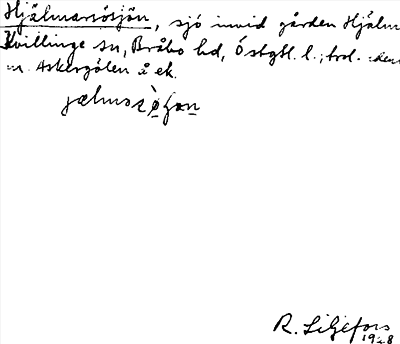 Hjälmarsösjön, sjö invid gården Hjälm
Kvillinge sn, Bråbo hd, Östgtl. l.; trol. den
m. Askersgölen å ek.
R. Liljefors